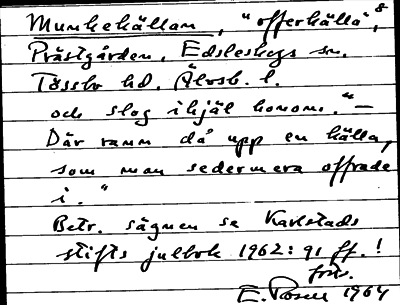 Munkekällan, "offerkälla", 8
Prästgården, Edsleskogs sn.
Tössbo hd. Älvsb. l.
och slog ihjäl honom." —
Där rann då upp en källa,
som man sedermera offrade
i."
Betr. sägnen se Karlstads
stifts julbok 1962: 91 ff.!
forts.
E. 1964